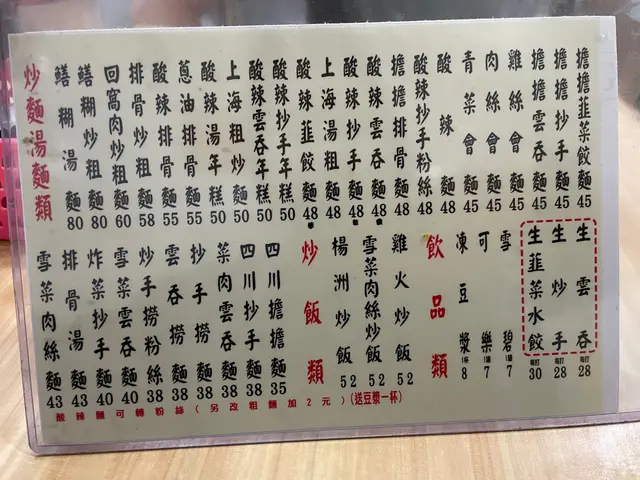 炒麵湯麵類
鱔糊湯麵80
鱔糊炒粗麵80
回窩肉炒粗麵60
排骨炒粗麵58
酸辣排骨麵55
蔥油排骨麵55
酸辣湯年糕50
上海粗炒麵50
酸辣雲吞年糕50
酸辣抄手年糕50
酸辣韮餃麵48
上海湯粗麵48
酸辣抄手麵48
酸辣雲吞麵48
擔擔排骨麵48
酸辣抄手粉絲48
酸辣麵48
青菜會麵45
肉絲會麵45
雞絲會麵45
擔擔雲吞麵45
擔擔抄手麵45
擔擔韮菜餃麵45
雪菜肉絲麵43
排骨湯麵43
炸菜抄手麵40
雪菜雲吞麵40
抄手撈粉絲38
雲吞撈麵38
抄手撈麵38
菜肉雲吞麵38
四川抄手麵38
四川擔擔麵35
炒飯類
楊洲炒飯52
雪菜肉絲炒飯52
雞火炒飯52
飲品類
凍豆漿8
可樂7
雪碧7
生韮菜水餃30
生炒手28
生雲吞28
酸辣麵可轉粉絲(另改粗麵加2元)(送豆漿一杯)